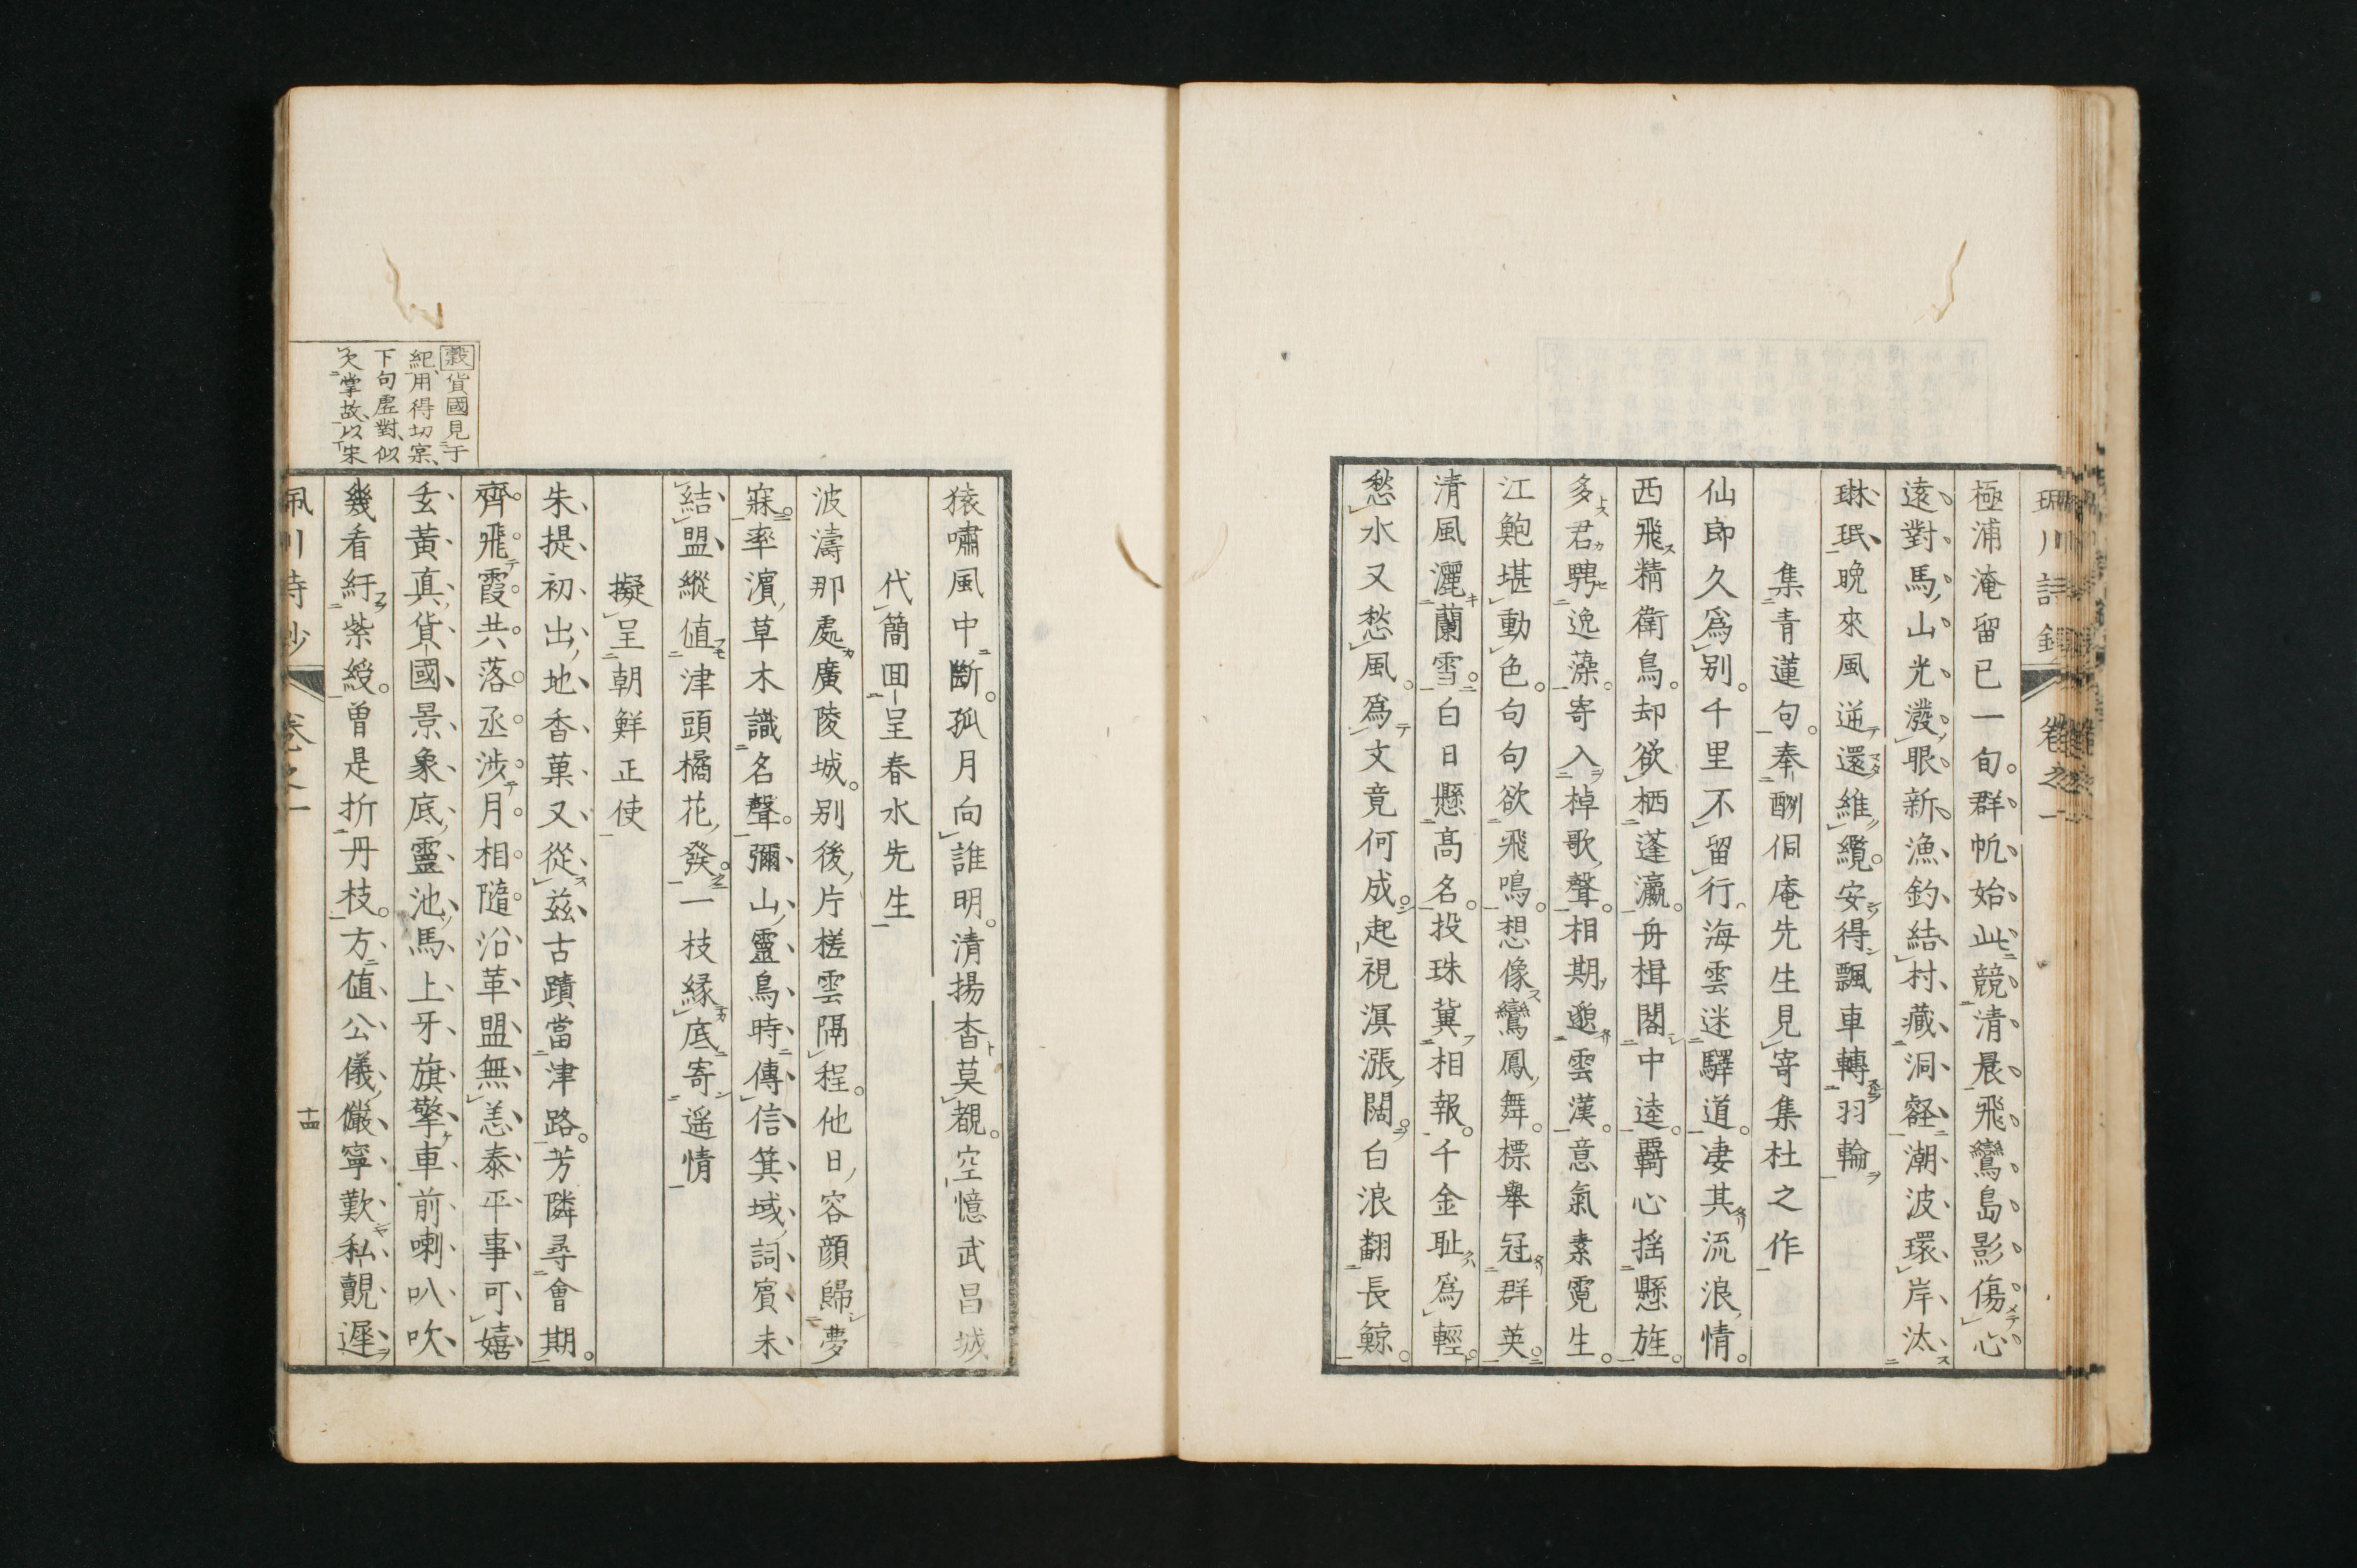 珮川詩鈔 卷之一
極浦淹留已一旬群帆始此競清晨飛鸞島影傷心
遠對馬山光潑眼新漁釣結村藏洞壑潮波環岸汰
琳珉晚來風逆還維纜安得飄車轉羽輪
集青蓮句奉酬侗庵先生見寄集杜之作
仙郎久爲別千里不留行海雲迷驛道凄其流浪情
西飛精衛鳥却欲栖蓬瀛舟楫閣中逵覊心揺懸旌
多君騁逸藻寄入棹歌聲相期邈雲漢意氣素霓生
江鮑堪動色句句欲飛鳴想像鸞鳳舞標舉冠群英
清風灑蘭雪白日懸高名投珠冀相報千金耻爲輕
愁水又愁風爲文竟何成起視溟漲闊白浪翻長鯨
猿嘯風中斷孤月向誰明清揚杳莫覩空憶武昌城
代簡回呈春水先生
波濤那處廣陵城別後片槎雲隔程他日容顔歸夢
寐率濵草木識名聲彌山靈鳥時傳信箕域詞賓未
結盟縱值津頭橘花發一枝緣底寄遥情
擬呈朝鮮正使
朱提初出地香菓又從茲古蹟當津路芳隣尋會期
齊飛霞共落丞涉月相隨沿革盟無恙泰平事可嬉
玄黃真貨國景象底靈池馬上牙旗擎車前喇叭吹
幾看紆紫綬曾是折丹枝方值公儀儼寧歎私覿遲
珮川詩鈔 卷之一 十四
穀貨國見于
紀用得切寀
下句虚對似
欠掌故以宋